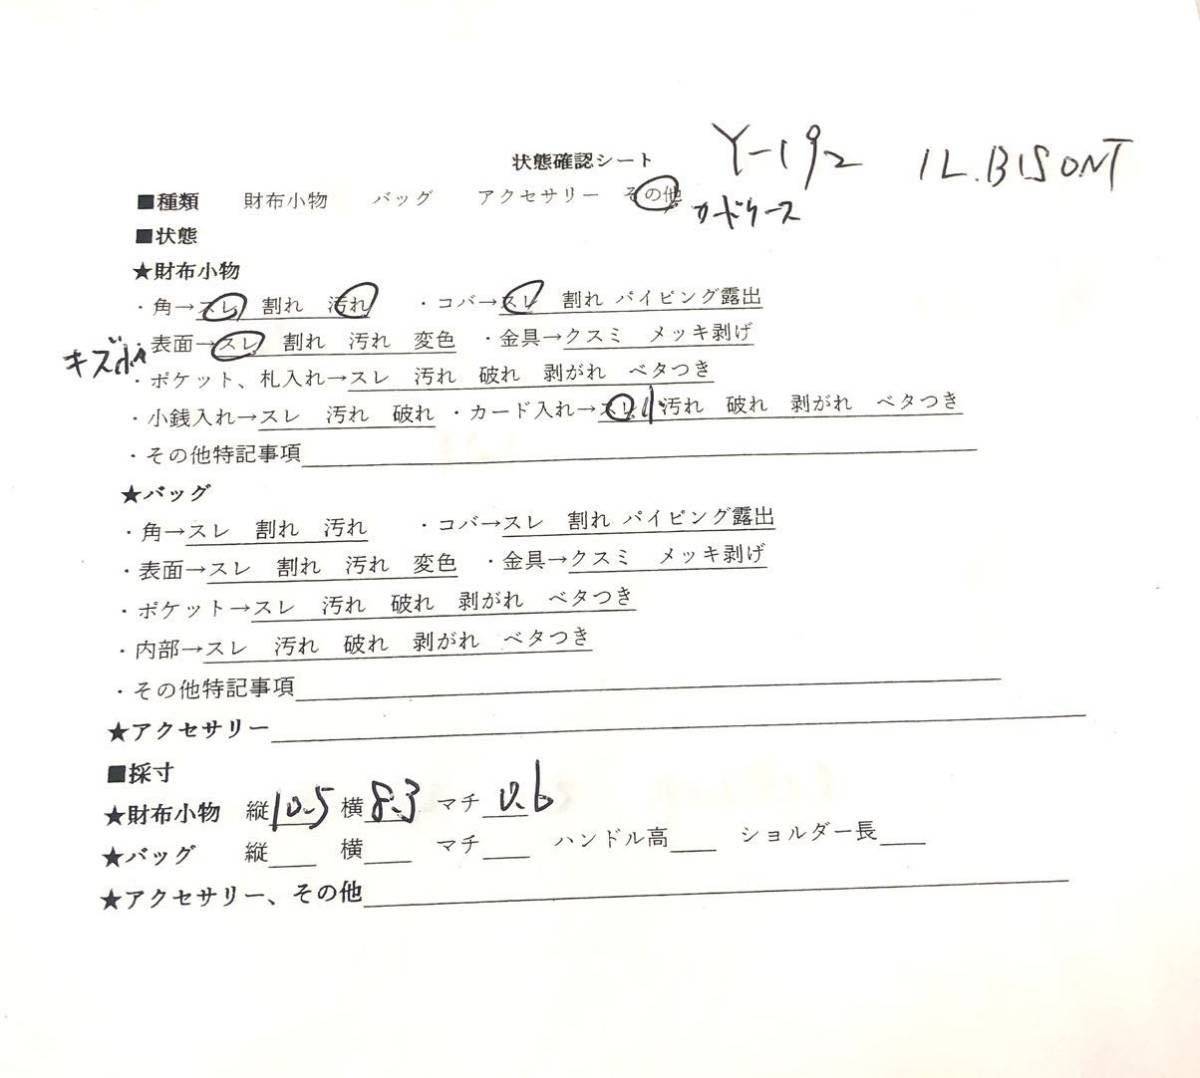 状態確認シート Y-192 IL.BISONT
■種類 財布小物 バッグ アクセサリー その他 カードケース
■状態
★財布小物
・角→スレ 割れ 汚れ ・コバ→スレ 割れ パイピング露出
キズ小 ・表面→スレ 割れ 汚れ 変色 ・金具→クスミ メッキ剥げ
・ポケット、札入れ→スレ 汚れ 破れ 剥がれ ベタつき
・小銭入れ→スレ 汚れ 破れ ・カード入れ→スレ 小 汚れ 破れ 剥がれ ベタつき
・その他特記事項
★バッグ
・角→スレ 割れ 汚れ ・コバ→スレ 割れ パイピング露出
・表面→スレ 割れ 汚れ 変色 ・金具→クスミ メッキ剥げ
・ポケット→スレ 汚れ 破れ 剥がれ ベタつき
・内部→スレ 汚れ 破れ 剥がれ ベタつき
・その他特記事項
★アクセサリー
■採寸
★財布小物 縦10.5 横8.3 マチ0.6
★バッグ 縦 横 マチ ハンドル高 ショルダー長
★アクセサリー、その他